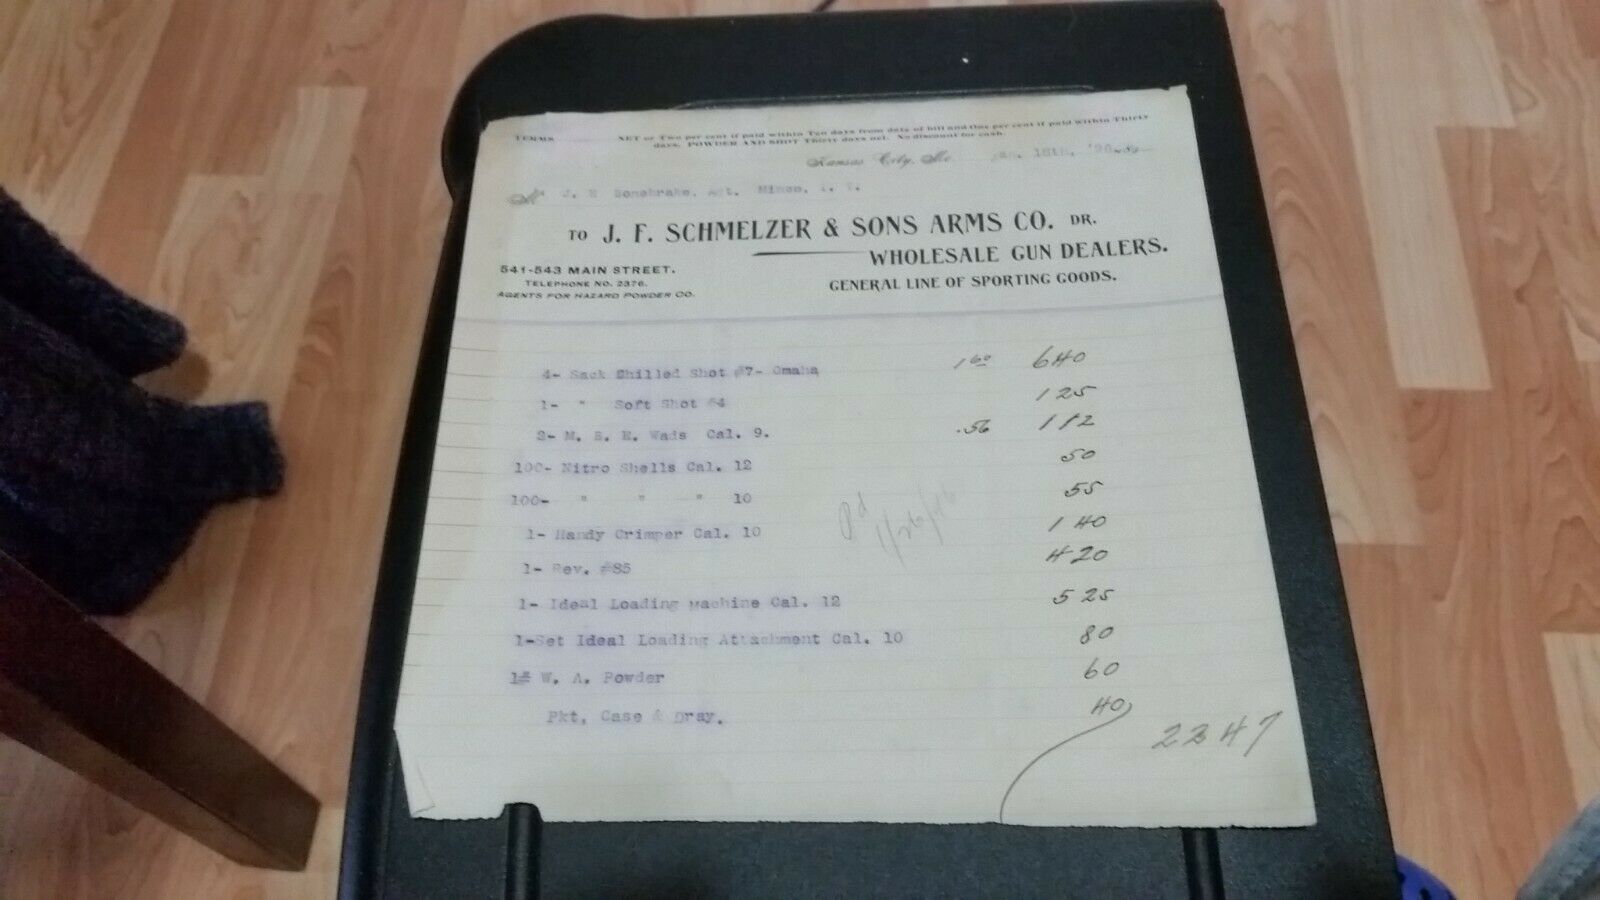 TERMS NET or Two per cent if paid within Ten days from date of bill and One per cent if paid within Thirty
days. POWDER AND SHOT Thirty days net. No discount for cash.
Kansas City, Mo. 18th, '96
M J. E Bonebrake, Agt. Minco, I. T.
TO J. F. SCHMELZER & SONS ARMS CO. DR.
WHOLESALE GUN DEALERS.
541-543 MAIN STREET.
TELEPHONE NO. 2376.
GENERAL LINE OF SPORTING GOODS.
AGENTS FOR HAZARD POWDER CO.
4- Sack Shilled Shot #7- Omaha 1 60 6 40
1- " Soft Shot #4 1 25
2- M. B. E. Wads Cal. 9. .56 1 12
100- Nitro Shells Cal. 12 50
100- " " " 10 55
Pd 1/26/96
1- Handy Crimper Cal. 10 1 40
1- Rev. #85 4 20
1- Ideal Loading Machine Cal. 12 5 25
1-Set Ideal Loading Attachment Cal. 10 80
1# W. A. Powder 60
Pkt, Case & Dray. 40
22 47